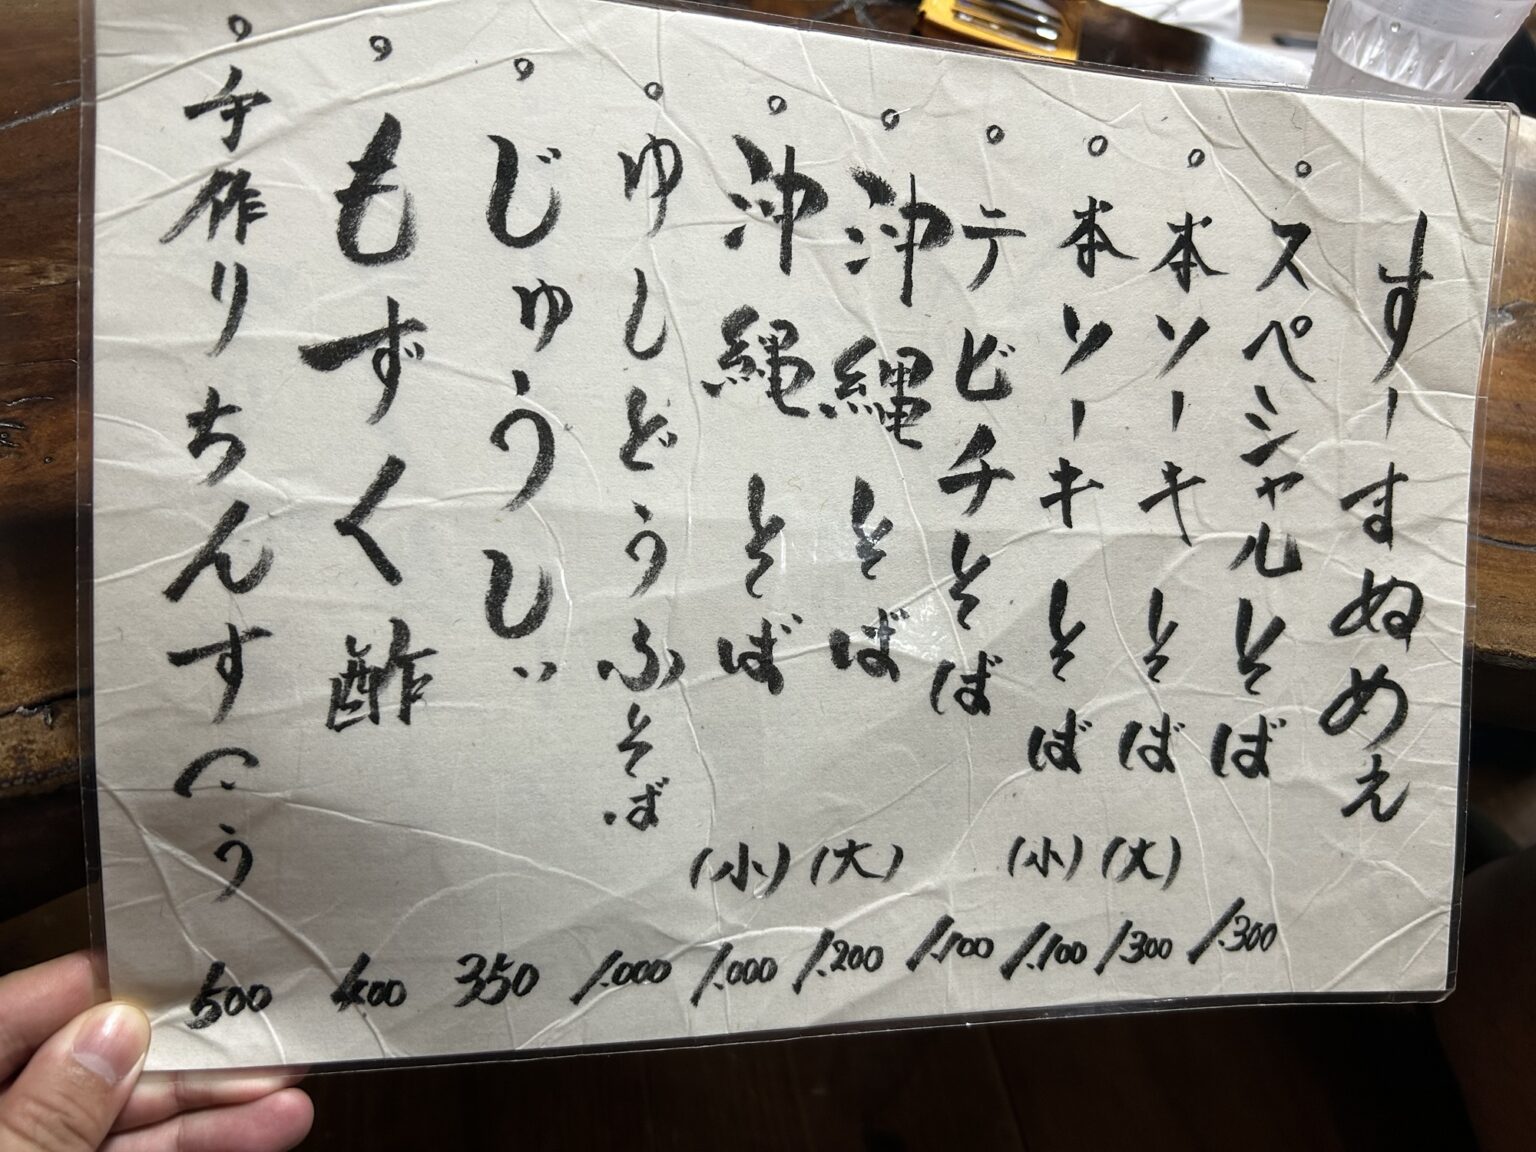 すーまぬめぇ
スペシャルそば 1.300
本ソーキそば (大) 1.300
本ソーキそば (小) 1.100
テビチそば 1.100
沖縄そば (大) 1.200
沖縄そば (小) 1.000
ゆしどうふそば 1.000
じゅうしぃ 350
もずく酢 400
手作りちんすこう 500